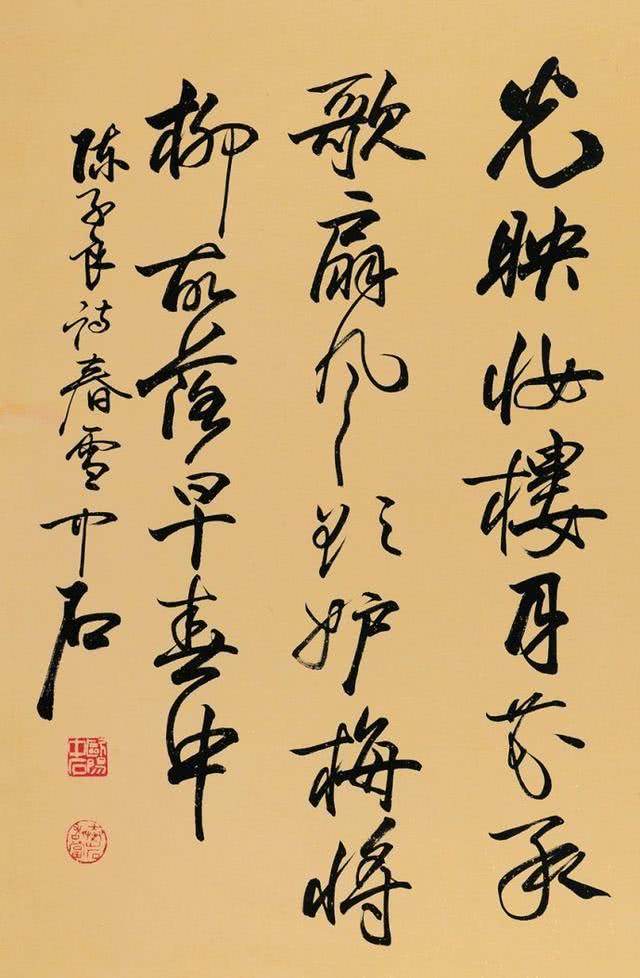 光映妆楼月花承
歌扇风欲妒梅将
柳故落早春中
陈子良诗春雪中石
欧阳中石